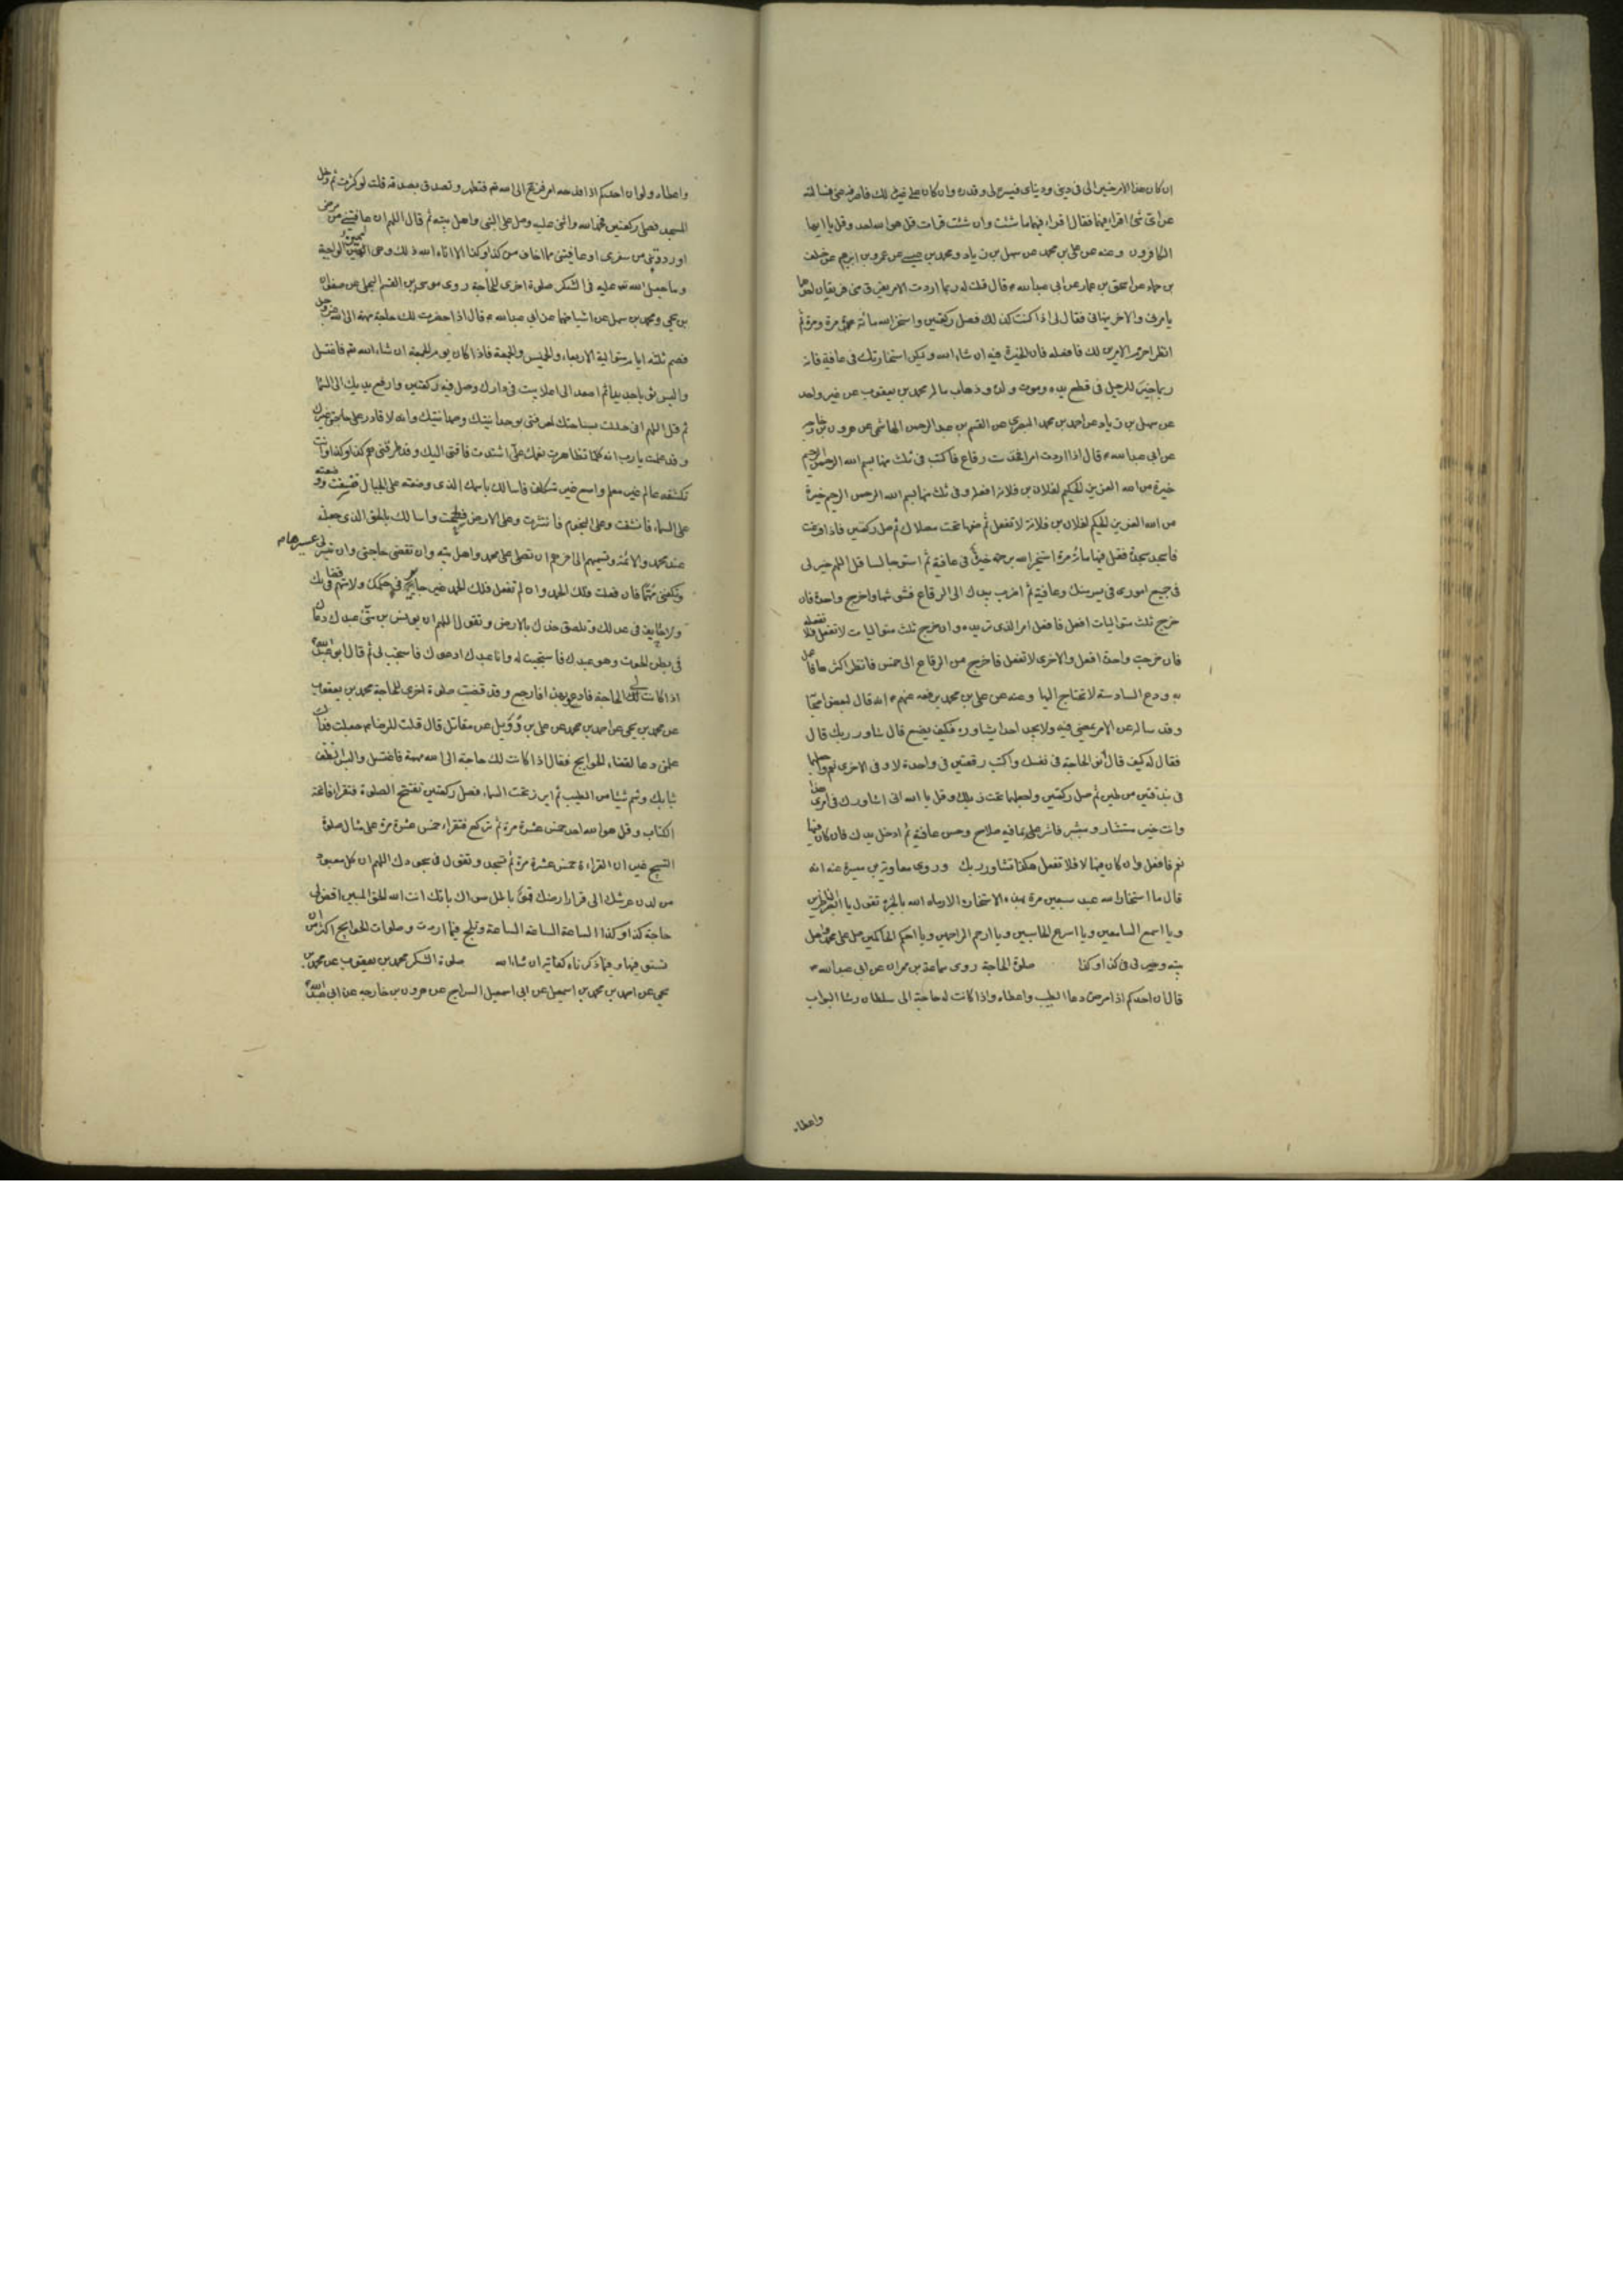 ان كان هذا الامر خيرا لى فى دينى ودنياى فيسره لى وقدره وان كان على غير ذلك فاصرفه عنى فسالته
عن اى شئ اقرا فيهما فقال اقرا فيهما ما شئت وان شئت قرات قل هو الله احد وقل يا ايها
الكافرون وعنه عن على بن محمد عن سهل بن زياد ومحمد بن عيسى عن عمرو بن ابرهيم عن خلف
بن حماد عن اسحق بن عمار عن ابى عبدالله ع قال قلت له ربما اردت الامر يفرق منى فريقان احدهما
يامرنى والاخر ينهانى فقال لى اذا كنت كذلك فصل ركعتين واستخر الله مائة مرة ومرة ثم
انظر احزم الامرين لك فافعله فان الخيرة فيه ان شاء الله وليكن استخارتك فى عافية فانه
ربما خير للرجل فى قطع يده وموت ولده وذهاب ماله محمد بن يعقوب عن غير واحد
عن سهل بن زياد عن احمد بن محمد البصرى عن القسم بن عبد الرحمن الهاشمى عن هرون بن خارجه
عن ابى عبدالله ع قال اذا اردت امرا فخذ ست رقاع فاكتب فى ثلث منها بسم الله الرحمن الرحيم
خيرة من الله العزيز الحكيم لفلان بن فلانة افعله وفى ثلث منها بسم الله الرحمن الرحيم خيرة
من الله العزيز الحكيم لفلان بن فلانة لا تفعل ثم ضعها تحت مصلاك ثم صل ركعتين فاذا فرغت
فاسجد سجدة فقل فيها مائة مرة استخير الله برحمته خيرة فى عافية ثم استو جالسا قل اللهم خر لى
فى جميع امورى فى يسر منك وعافية ثم اضرب بيدك الى الرقاع فشوشها واخرج واحدة فان
خرج ثلث متواليات افعل فافعل الامر الذى تريده وان خرج ثلث متواليات لا تفعل فلا تفعله
فان خرجت واحدة افعل والاخرى لا تفعل فاخرج من الرقاع الى خمس فانظر اكثرها فاعمل
به ودع السادسة لا تحتاج اليها وعنه عن على بن محمد رفعه عنهم ع انه قال لبعض اصحابنا
وقد ساله عن الامر يمضى فيه ولا يجد احدا يشاوره فكيف يصنع قال شاور ربك قال
فقال له كيف قال انو الحاجة فى نفسك واكتب رقعتين فى واحدة لا وفى الاخرى نعم واجعلهما
فى بندقتين من طين ثم صل ركعتين واجعلهما تحت ذيلك وقل يا الله انى اشاورك فى امرى هذا
وانت خير مستشار ومشير فاشر على بما فيه صلاح وحسن عافية ثم ادخل يدك فان كان فيها
نعم فافعل وان كان فيها لا فلا تفعل هكذا تشاور ربك وروى معاوية بن ميسرة عنه انه
قال ما استخار الله عبد سبعين مرة بهذه الاستخارة الا رماه الله بالخيرة تقول يا ابصر الناظرين
ويا اسمع السامعين ويا اسرع الحاسبين ويا ارحم الراحمين ويا احكم الحاكمين صل على محمد واهل
بيته وخر لى فى كذا وكذا صلوة الحاجة روى سماعة بن مهران عن ابى عبدالله ع
قال ان احدكم اذا مرض دعا الطبيب واعطاه واذا كانت له حاجة الى سلطان رشا البواب
واعطاه
واعطاه ولو ان احدكم اذا فدحه امر فزع الى الله تع فتطهر وتصدق بصدقة قلت او كثرت ثم دخل
المسجد فصلى ركعتين فحمد الله واثنى عليه وصلى على النبى واهل بيته ثم قال اللهم ان عافيتنى من مرضى
او رددتنى من سفرى او عافيتنى مما اخاف من كذا وكذا الا اتاه الله ذلك وهى اليمين الواجبة
وما جعل الله تع عليه فى الشكر صلوة اخرى للحاجة روى موسى بن القسم البجلى عن صفوان
بن يحيى ومحمد بن سهل عن اشياخهما عن ابى عبدالله ع قال اذا حضرت لك حاجة مهمة الى الله عز وجل
فصم ثلثه ايام متوالية الاربعاء والخميس والجمعة فاذا كان يوم الجمعة ان شاء الله تع فاغتسل
والبس ثوبا جديدا ثم اصعد الى اعلا بيت فى دارك وصل فيه ركعتين وارفع يديك الى السماء
ثم قل اللهم انى حللت بساحتك لمعرفتى بوحدانيتك وصمدانيتك وانه لا قادر على حاجتى غيرك
وقد علمت يا رب انه كلما تظاهرت نعمك على اشتدت فاقتى اليك وقد طرقنى هم كذا وكذا وانت
تكشفه عالم غير معلم واسع غير متكلف فاسالك باسمك الذى وضعته على الجبال فنسفت ووضعته
على السماء فانشقت وعلى النجوم فانتثرت وعلى الارض فسطحت واسالك بالحق الذى جعلته
عند محمد والائمة وتسميهم الى اخرهم ان تصلى على محمد واهل بيته وان تقضى حاجتى وان تيسر لى عسيرها
وتكفينى مهمها فان فعلت فلك الحمد وان لم تفعل فلك الحمد غير جائر فى حكمك ولا متهم فى قضائك
ولا حايف فى عدلك وتلصق خدك بالارض وتقول اللهم ان يونس بن متى عبدك دعاك
فى بطن الحوت وهو عبدك فاستجبت له وانا عبدك ادعوك فاستجب لى ثم قال ابو عبدالله ع
اذا كانت لى الحاجة فادعو بهذا فارجع وقد قضيت صلوة اخرى للحاجة محمد بن يعقوب
عن محمد بن يحيى عن احمد بن محمد عن على بن دويل عن مقاتل قال قلت للرضا ع جعلت فداك
علمنى دعا لقضاء الحوايج فقال اذا كانت لك حاجة الى الله مهمة فاغتسل والبس انظف
ثيابك وشم شيئا من الطيب ثم ابرز تحت السماء فصل ركعتين تفتتح الصلوة فتقرا فاتحة
الكتاب وقل هو الله احد خمس عشرة مرة ثم تركع فتقراء خمس عشرة مرة على مثال صلوة
التسبيح غير ان القراءة خمس عشرة مرة ثم تسجد وتقول فى سجودك اللهم ان كل معبود
من لدن عرشك الى قرار ارضك فهو باطل سواك بانك انت الله الحق المبين اقض لى
حاجة كذا وكذا الساعة الساعة الساعة وتلح فيما اردت وصلوات الحوايج اكثر من ان
فيها وفيما ذكرناه كفاية ان شاء الله صلوة الشكر محمد بن يعقوب عن محمد بن
يحيى عن احمد بن محمد بن اسمعيل عن ابى اسمعيل السراج عن هرون بن خارجه عن ابى عبدالله ع